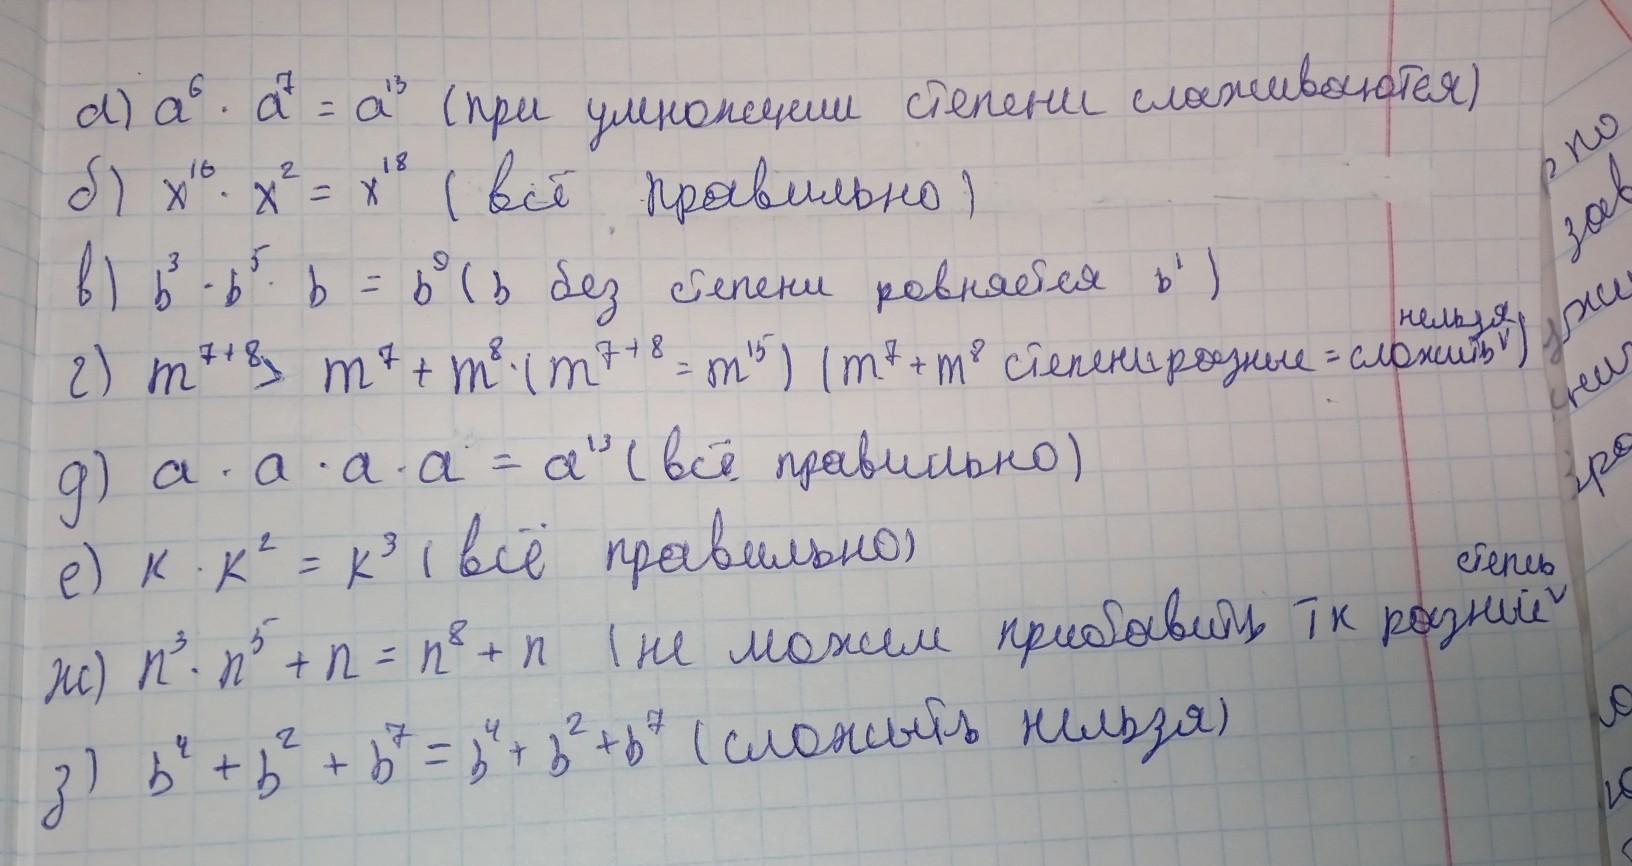 а) a⁶ · a⁷ = a¹³ (при умножении степени слаживаются)
б) x¹⁶ · x² = x¹⁸ (всё правильно)
в) b³ · b⁵ · b = b⁹ (b без степени ровняется b¹)
нельзя
г) m⁷⁺⁸ > m⁷ + m⁸ · (m⁷⁺⁸ = m¹⁵) (m⁷ + m⁸ степени разные = сложить ᵛ)
д) a · a · a · a = a¹³ (всё правильно)
е) к · к² = к³ (всё правильно)
степень
ж) n³ · n⁵ + n = n⁸ + n (не можем прибавить тк разний ᵛ
з) b⁴ + b² + b⁷ = b⁴ + b² + b⁷ (сложыть нельзя)
по
зав